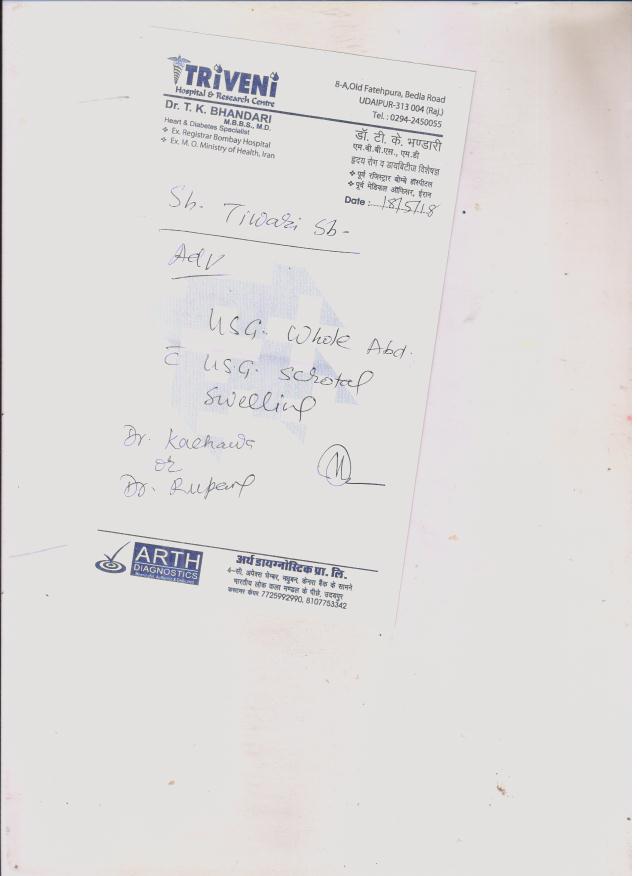 TRIVENI
Hospital & Research Centre
Dr. T. K. BHANDARI
M.B.B.S., M.D.
Heart & Diabetes Specialist
❖ Ex. Registrar Bombay Hospital
❖ Ex. M. O. Ministry of Health, Iran
8-A,Old Fatehpura, Bedla Road
UDAIPUR-313 004 (Raj.)
Tel. : 0294-2450055
डॉ. टी. के. भण्डारी
एम.बी.बी.एस., एम.डी
हृदय रोग व डायबिटीज विशेषज्ञ
❖ पूर्व रजिस्ट्रार बोम्बे हॉस्पीटल
❖ पूर्व मेडिकल ऑफिसर, ईरान
Date : 18/5/18
Sh. Tiwari Sb-
Adv
USG. Whole Abd.
c̄ USG. Scrotal
Swelling
Dr. Kachawa
or
Dr. Rupam
ARTH
DIAGNOSTICS
अर्थ डायग्नोस्टिक प्रा. लि.
4-सी, अपेक्स चेम्बर, मधुबन, केनरा बैंक के सामने
भारतीय लोक कला मण्डल के पीछे, उदयपुर
कस्टमर केयर 7725992990, 8107753342